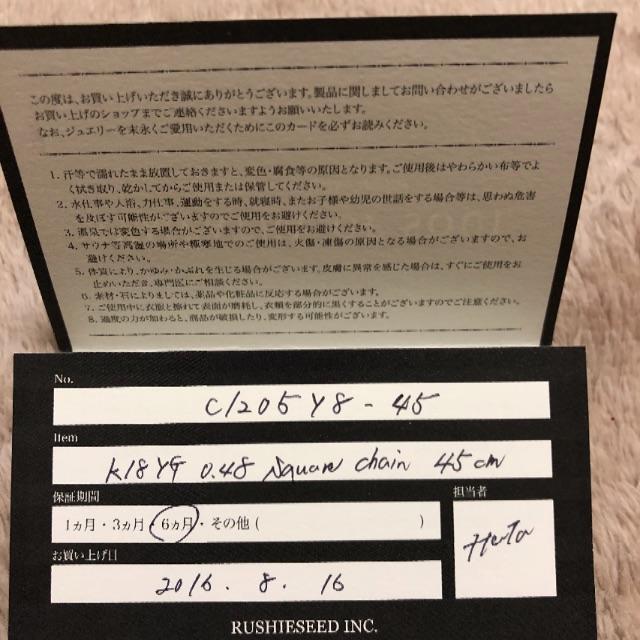 この度は、お買い上げいただき誠にありがとうございます。製品に関しましてお問い合わせがございましたら
お買い上げのショップまでご連絡くださいますようお願いいたします。
なお、ジュエリーを末永くご愛用いただくためにこのカードを必ずお読みください。
1. 汗等で濡れたまま放置しておきますと、変色・腐食等の原因となります。ご使用後はやわらかい布等でよ
く拭き取り、乾かしてからご使用または保管してください。
2. 水仕事や入浴、力仕事、運動をする時、就寝時、またお子様や幼児の世話をする場合等は、思わぬ危害
を及ぼす可能性がございますのでご使用をお避けください。
3. 温泉では変色する場合がございますので、ご使用をお避けください。
4. サウナ等高温の場所や極寒地でのご使用は、火傷・凍傷の原因となる場合がございますので、お
避けください。
5. 体質により、かゆみ・かぶれを生じる場合がございます。皮膚に異常を感じた場合は、すぐにご使用をお
止めいただき、専門医にご相談ください。
6. 素材・石によりましては、薬品や化粧品に反応する場合がございます。
7. ご使用中に衣服と擦れて表面が磨耗し、衣類を部分的に黒くすることがございますのでご注意ください。
8. 過度の力が加わると、商品が破損したり、変形する可能性がございます。
No.
C1205Y8-45
Item
K18YG 0.48 Square chain 45cm
保証期間
担当者
1ヵ月・3ヵ月・6ヵ月・その他( )
お買い上げ日
2016. 8. 16
RUSHIESEED INC.